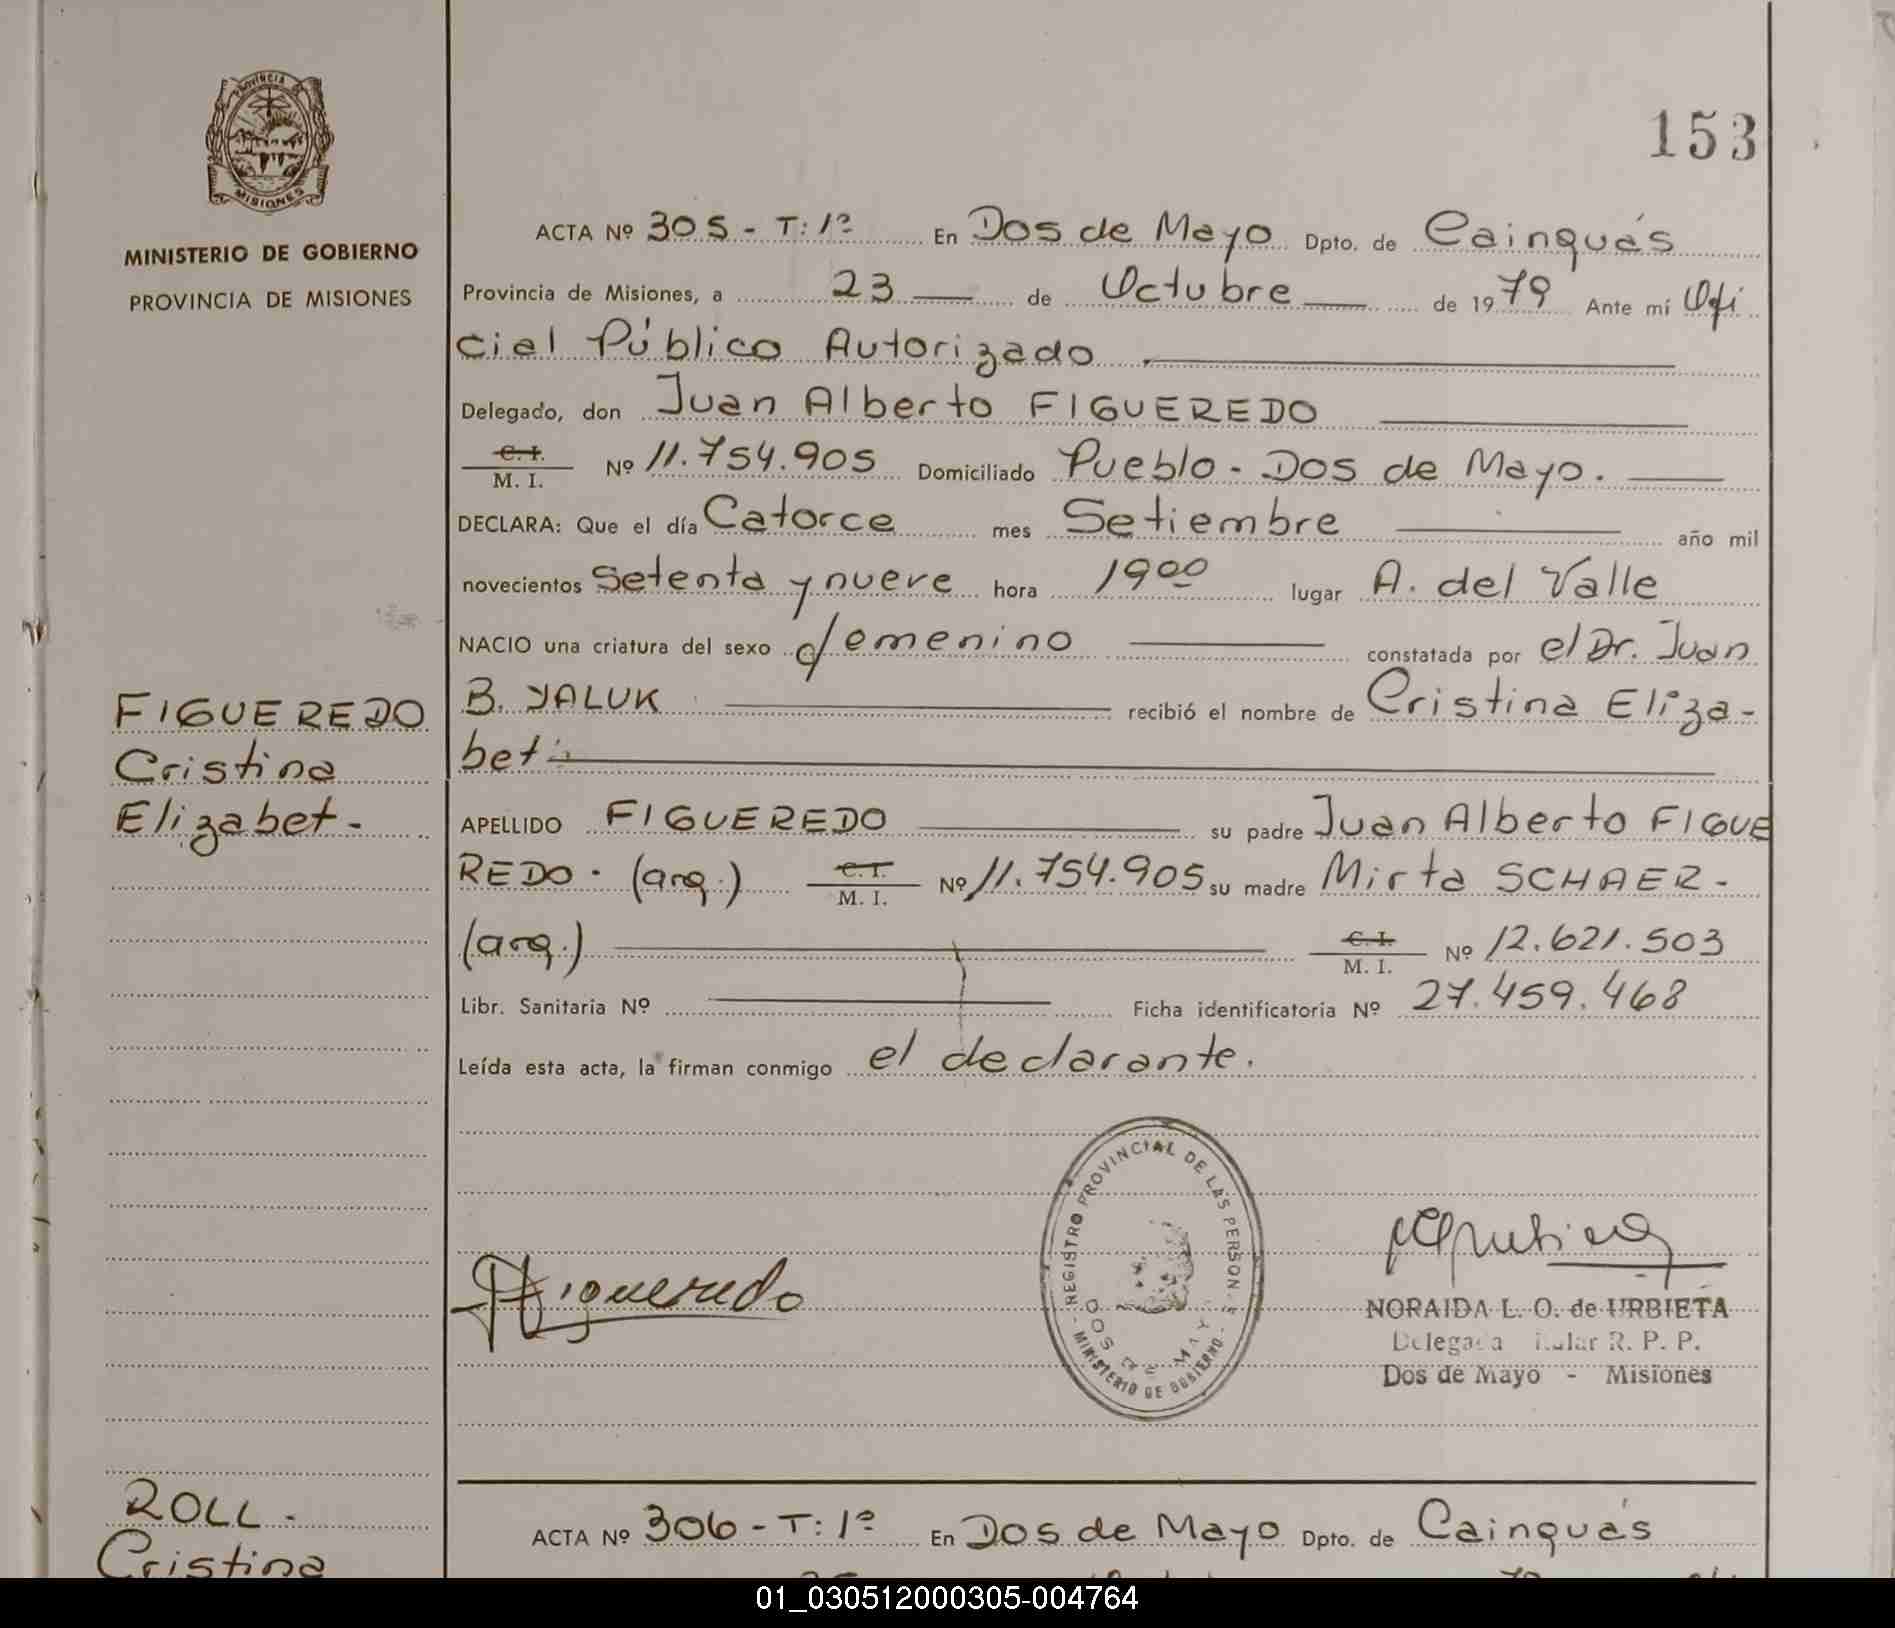 PROVINCIA DE
MISIONES
MINISTERIO DE GOBIERNO
PROVINCIA DE MISIONES
153
ACTA Nº 305 - T: 1º En Dos de Mayo Dpto. de Cainguás
Provincia de Misiones, a 23 de Octubre de 1979 Ante mí Ofi
cial Público Autorizado
Delegado, don Juan Alberto FIGUEREDO
C. I.
M. I. Nº 11.754.905 Domiciliado Pueblo - Dos de Mayo.
DECLARA: Que el día Catorce mes Setiembre año mil
novecientos setenta y nueve hora 1900 lugar A. del Valle
NACIO una criatura del sexo femenino constatada por el Dr. Juan
B. YALUK recibió el nombre de Cristina Eliza-
bet
FIGUEREDO
Cristina
Elizabet -
APELLIDO FIGUEREDO su padre Juan Alberto FIGUE
REDO. (arg.) C. I. M. I. Nº 11.754.905 su madre Mirta SCHAER -
(arg.) C. I. M. I. Nº 12.621.503
Libr. Sanitaria Nº Ficha identificatoria Nº 27.459.468
Leída esta acta, la firman conmigo el declarante.
REGISTRO PROVINCIAL DE LAS PERSON
MINISTERIO DE GOBIERNO
DOS DE MAY
Figueredo
NORAIDA L. O. de URBIETA
R. P. P.
Dos de Mayo - Misiones
ROLL -
Cristina
ACTA Nº 306 - T: 1º En Dos de Mayo Dpto. de Cainguás
01_030512000305-004764